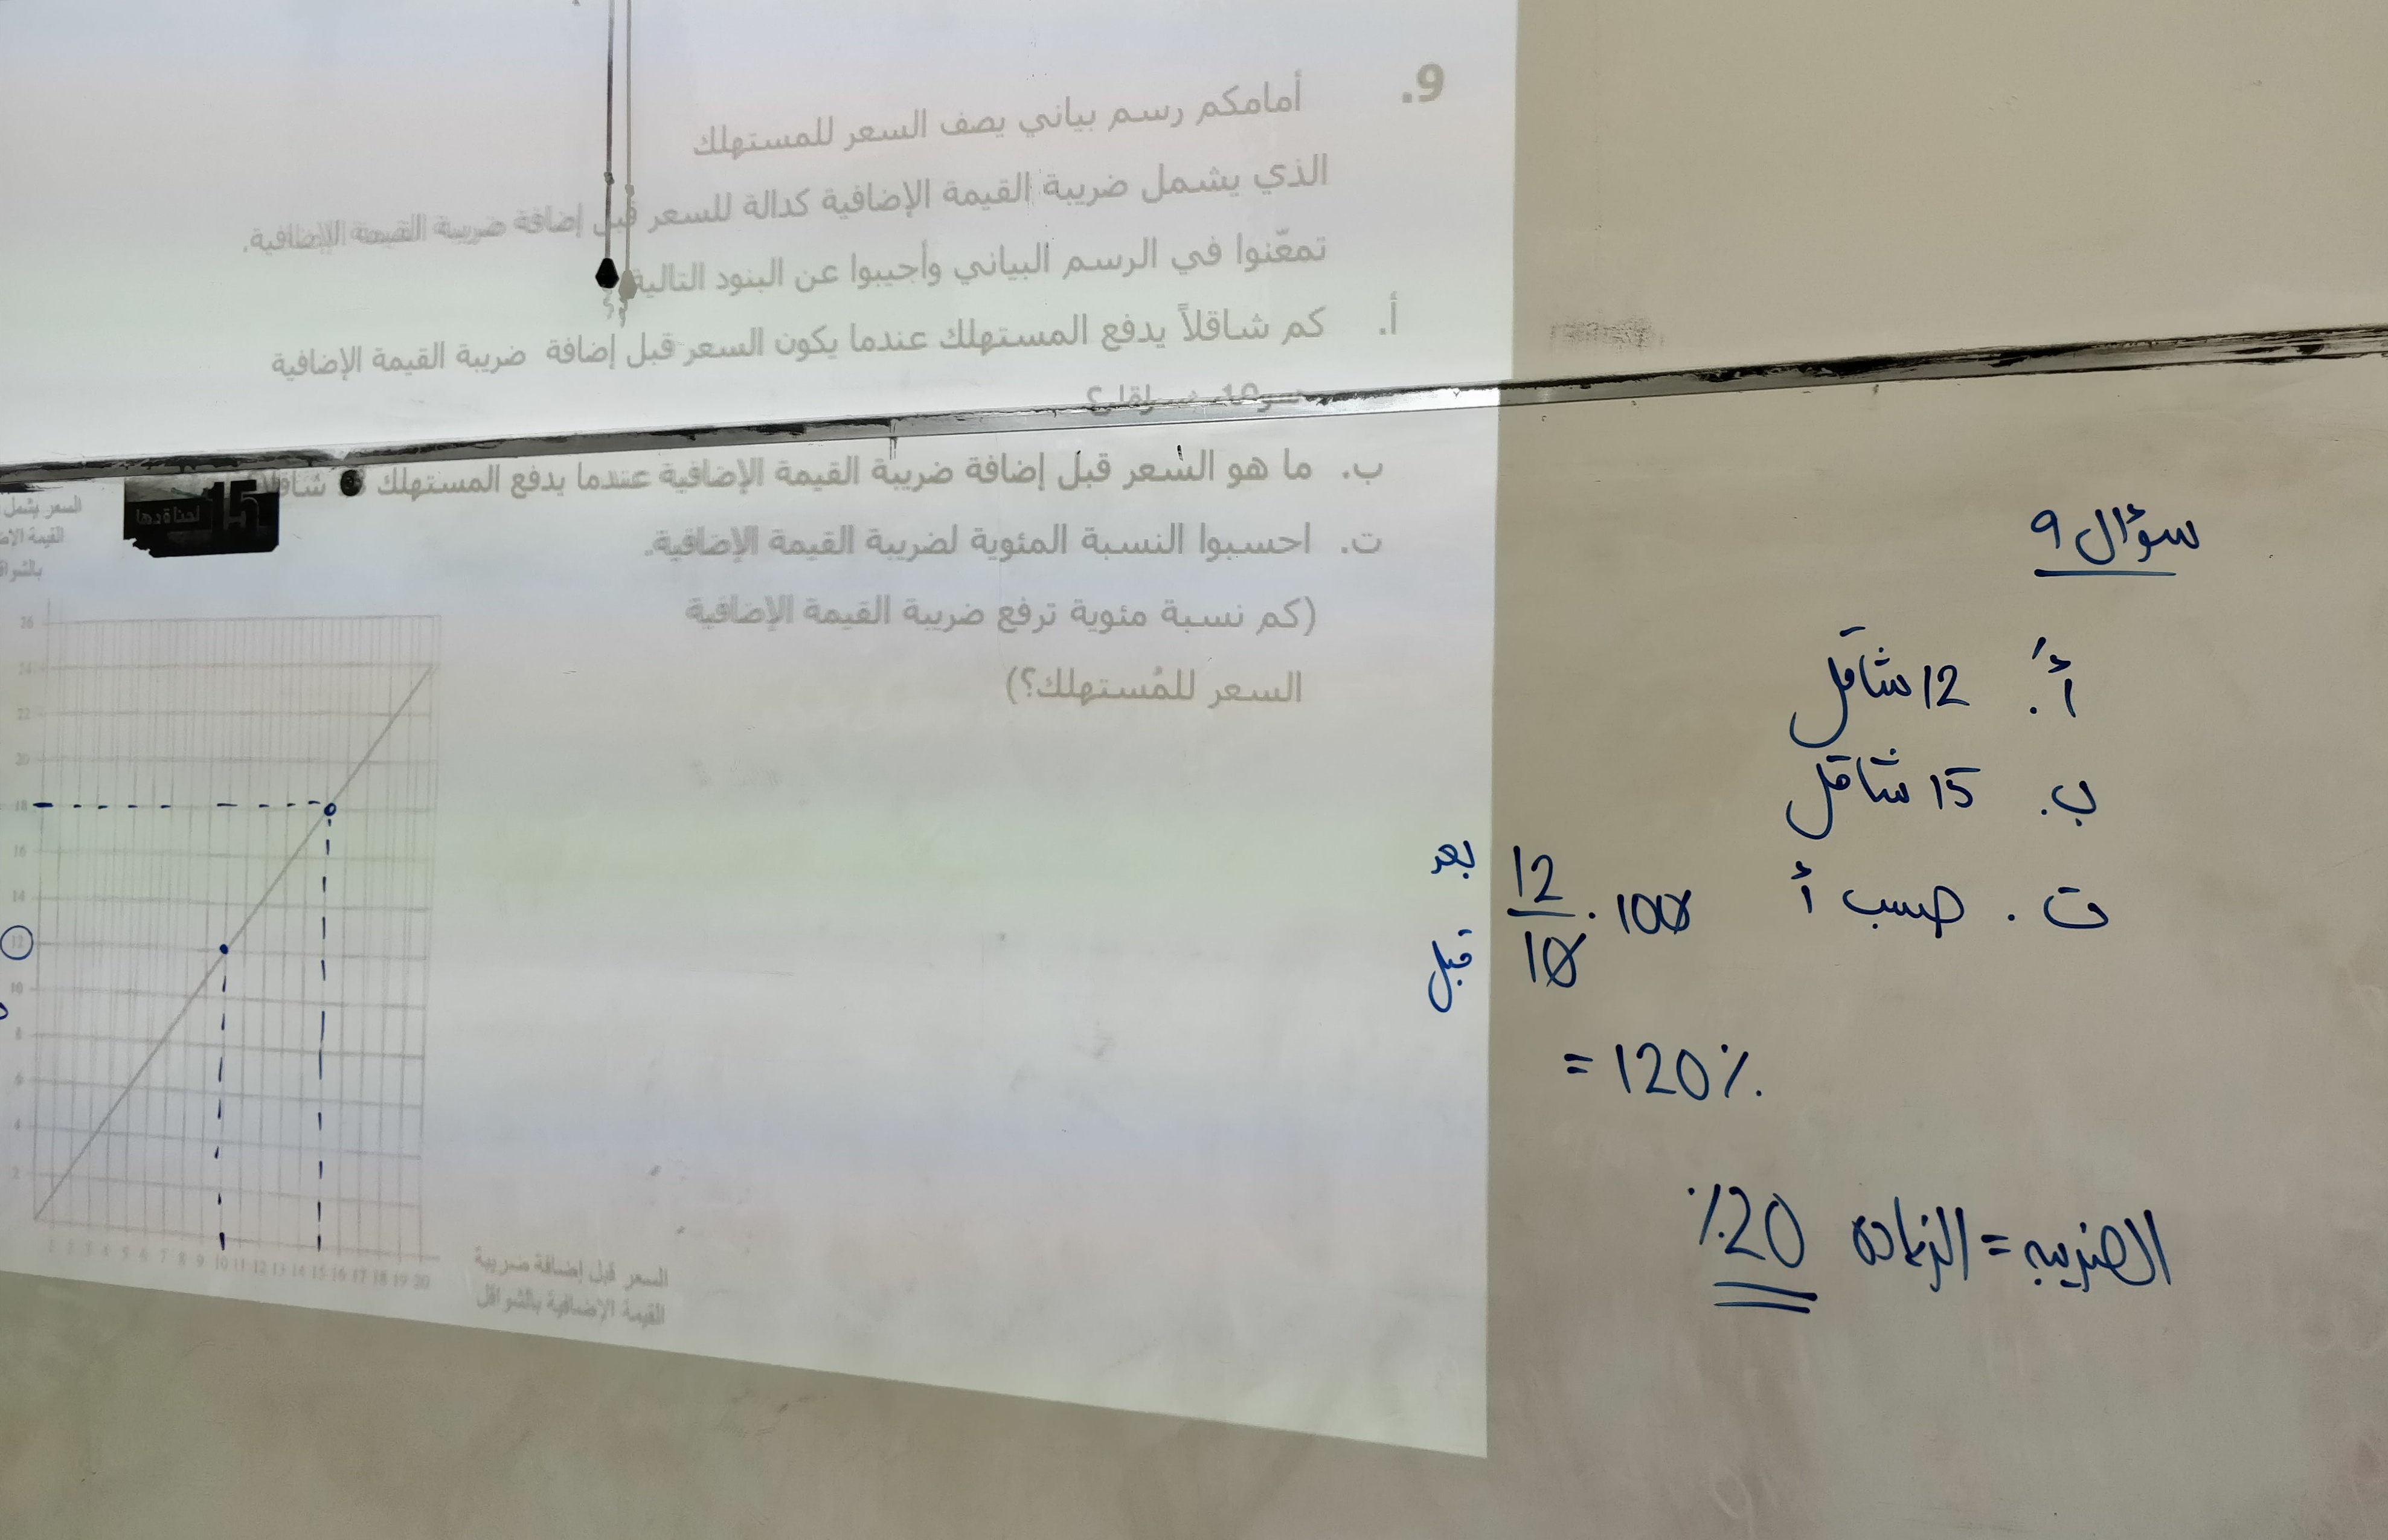 9.
أمامكم رسم بياني يصف السعر للمستهلك
الذي يشمل ضريبة القيمة الإضافية كدالة للسعر قبل إضافة ضريبة القيمة الإضافية.
تمعّنوا في الرسم البياني وأجيبوا عن البنود التالية
أ. كم شاقلاً يدفع المستهلك عندما يكون السعر قبل إضافة ضريبة القيمة الإضافية
10 شواقل؟
ب. ما هو السعر قبل إضافة ضريبة القيمة الإضافية عندما يدفع المستهلك شاقلا
ت. احسبوا النسبة المئوية لضريبة القيمة الإضافية.
(كم نسبة مئوية ترفع ضريبة القيمة الإضافية
السعر للمُستهلك؟)
15
السعر يشمل
القيمة
26
24
22
20
18
16
14
12
10
8
6
4
2
1 2 3 4 5 6 7 8 9 10 11 12 13 14 15 16 17 18 19 20
السعر قبل إضافة ضريبة
القيمة الإضافية بالشواقل
سؤال 9
أ. 12 شاقل
ب. 15 شاقل
ت. حسب أ
بعد 12 . 100
قبل 10
= 120%
الضريبه = الزياده 20%